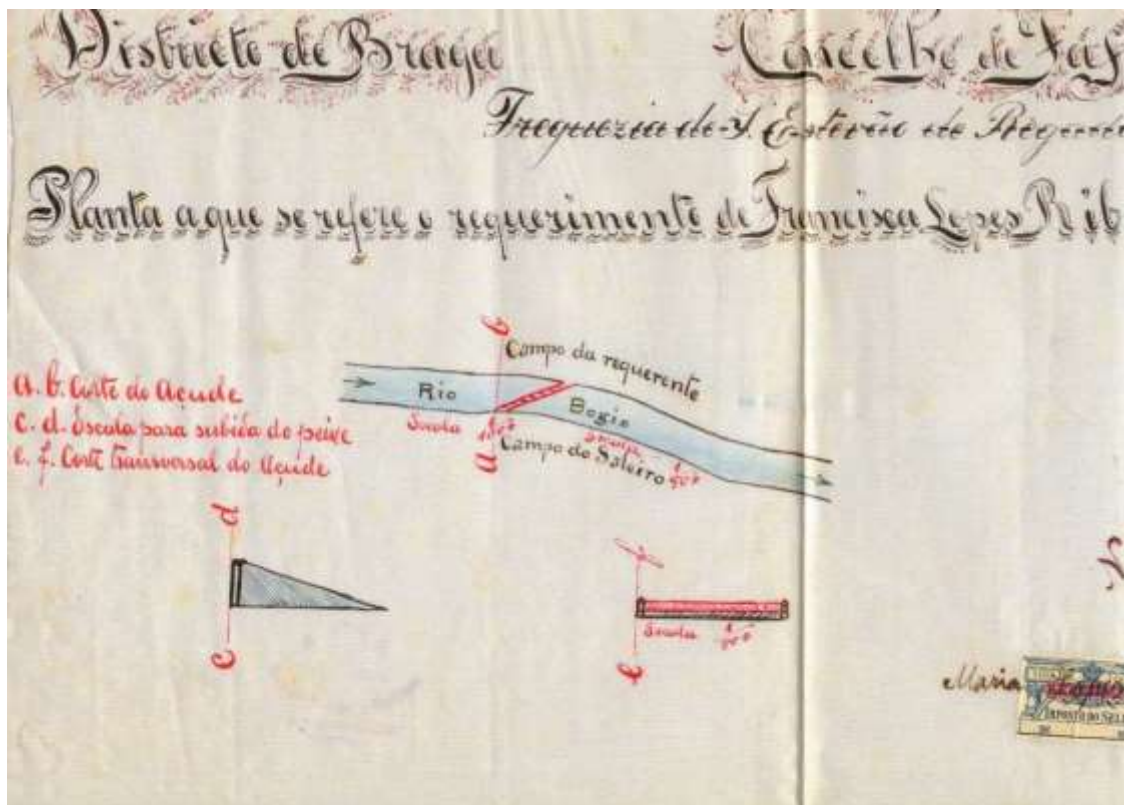 Districto de Braga
Concelho de Faf
Freguezia de S. Estevão de Regad
Planta a que se refere o requerimento de Francisca Lopes Rib
a. b. Corte do Açude
c. d. Escala para subida do peixe
e. f. Corte transversal do Açude
b
Campo da requerente
Rio
Bogio
Escala
Escala
1
500
a
Campo do Saleiro
d
c
f
e
Escala
1
Maria
IMPOSTO DO SEL